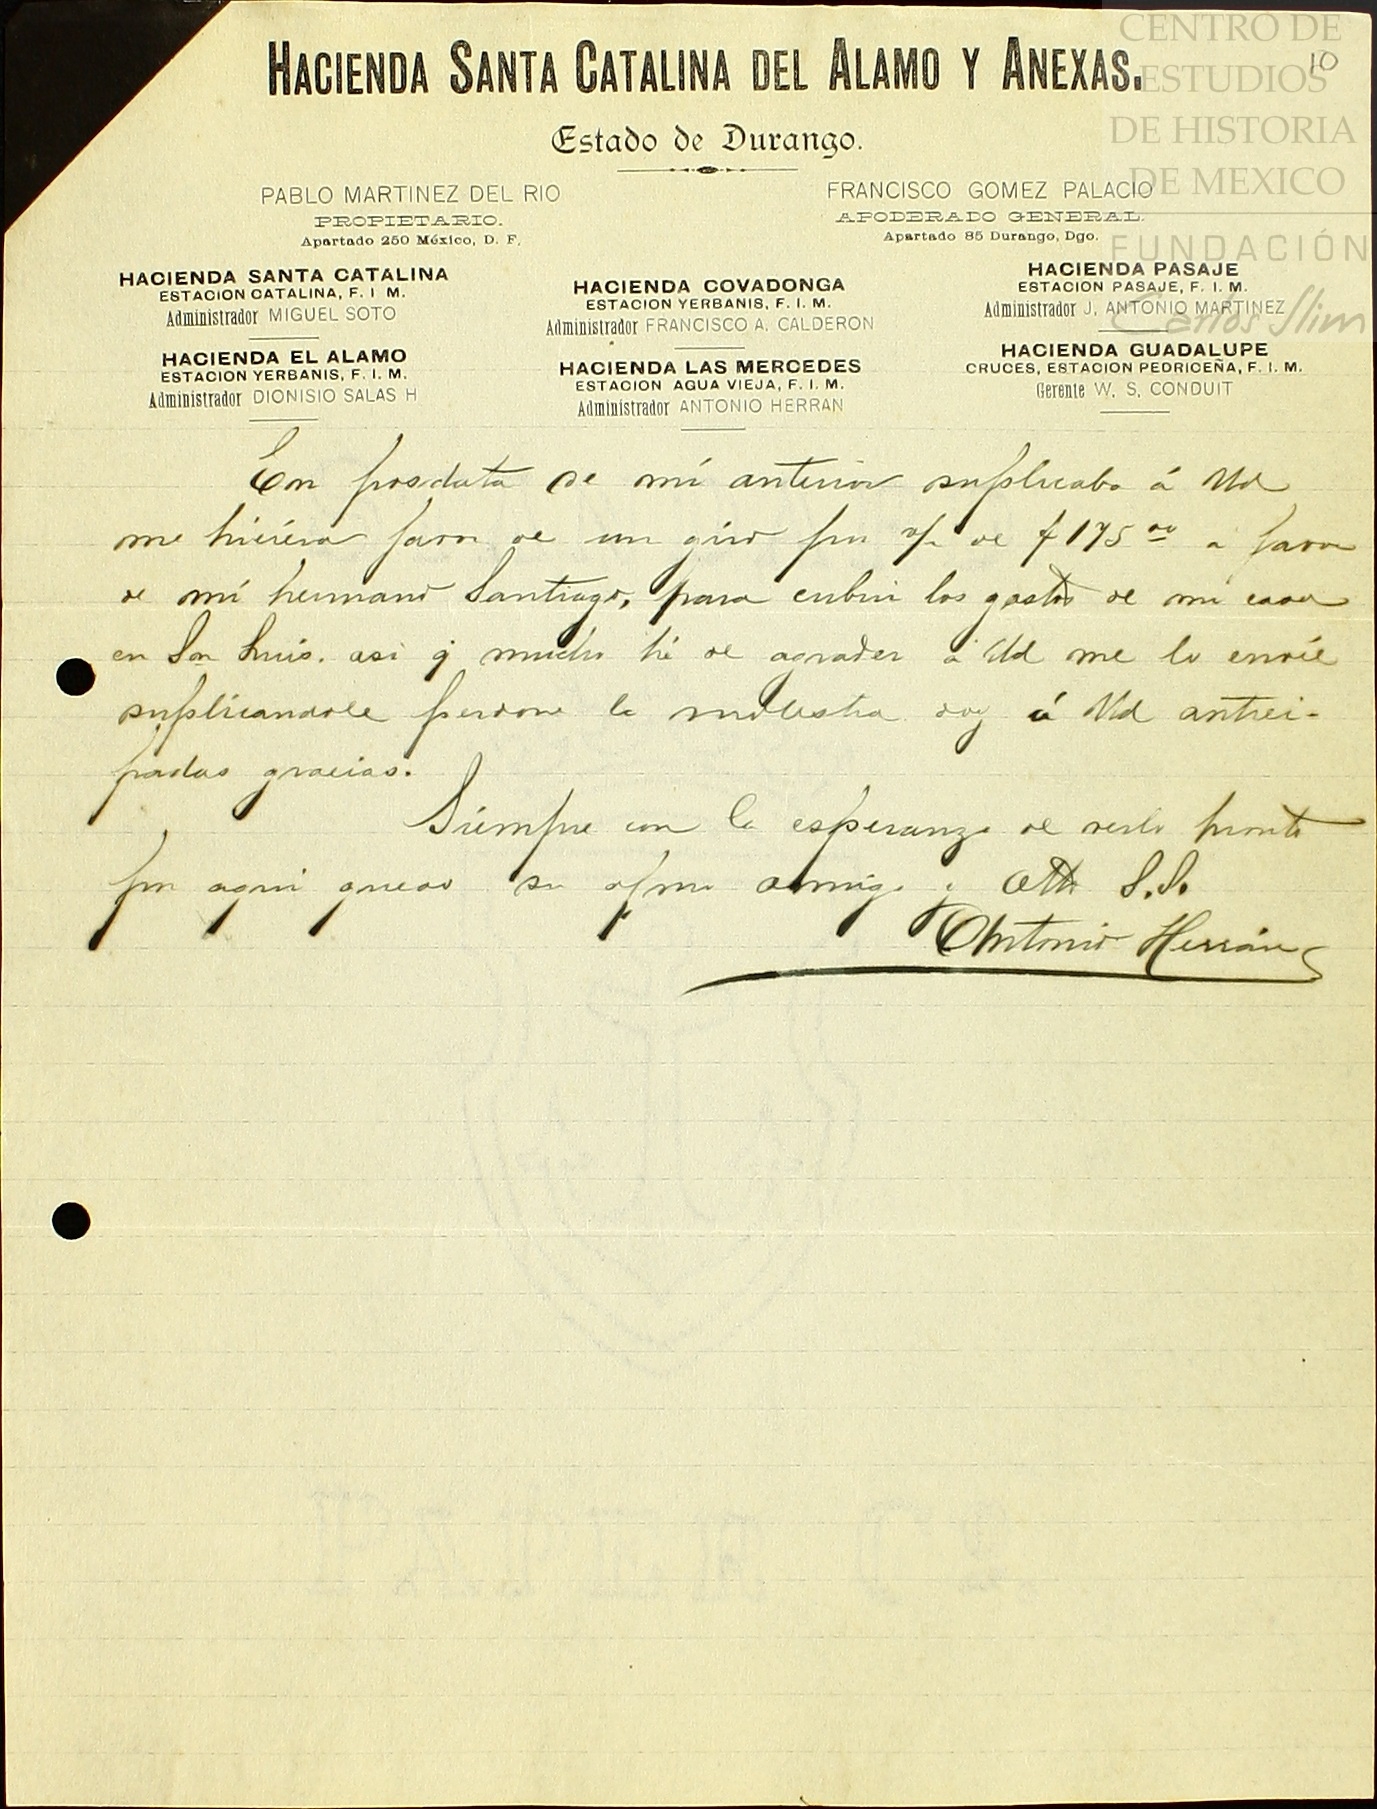 HACIENDA SANTA CATALINA DEL ALAMO Y ANEXAS.
10
Estado de Durango.
PABLO MARTINEZ DEL RIO
PROPIETARIO.
Apartado 250 México, D. F.
FRANCISCO GOMEZ PALACIO
APODERADO GENERAL.
Apartado 85 Durango, Dgo.
HACIENDA SANTA CATALINA
ESTACION CATALINA, F. I M.
Administrador MIGUEL SOTO
HACIENDA COVADONGA
ESTACION YERBANIS, F. I. M.
Administrador FRANCISCO A. CALDERON
HACIENDA PASAJE
ESTACION PASAJE, F. I. M.
Administrador J. ANTONIO MARTINEZ
HACIENDA EL ALAMO
ESTACION YERBANIS, F. I. M.
Administrador DIONISIO SALAS H
HACIENDA LAS MERCEDES
ESTACION AGUA VIEJA, F. I. M.
Administrador ANTONIO HERRAN
HACIENDA GUADALUPE
CRUCES, ESTACION PEDRICEÑA, F. I. M.
Gerente W. S. CONDUIT
En posdata de mí anterior suplicaba á Ud
me hiciéra favor de un giro por de $175 00 a favor
de mí hermano Santiago, para cubrir los gastos de mi casa
en San Luis. asi q mucho hé de agrader á Ud me lo envíe
suplicandole perdone la molestia doy á Ud antici-
padas gracias.
Siempre con la esperanza de verlo pronto
por aqui quedo su afmo amigo y Atto S.S.
Antonio Herrán
CENTRO DE
ESTUDIOS
DE HISTORIA
DE MEXICO
FUNDACIÓN
Carlos Slim